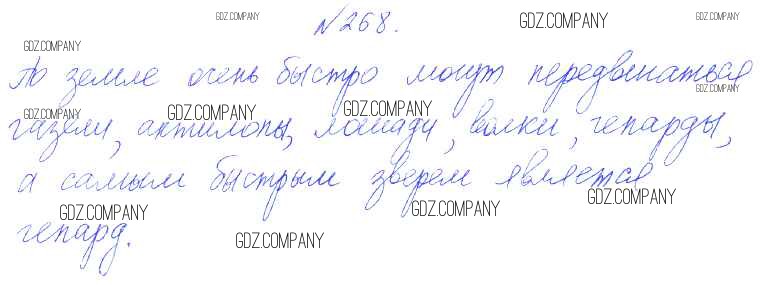 №268.
По земле очень быстро могут передвигаться
газели, антилопы, лошади, волки, гепарды,
а самым быстрым зверем является
гепард.
GDZ.COMPANY
GDZ.COMPANY
GDZ.COMPANY
GDZ.COMPANY
GDZ.COMPANY
GDZ.COMPANY
GDZ.COMPANY
GDZ.COMPANY
GDZ.COMPANY
GDZ.COMPANY
GDZ.COMPANY
GDZ.COMPANY